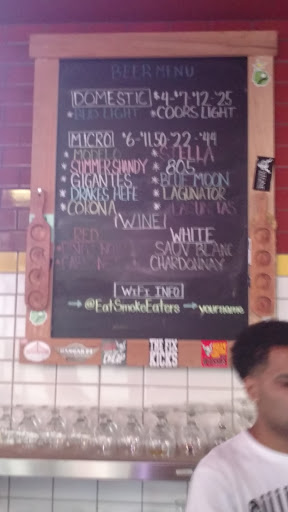 BEER MENU
DOMESTIC $4-$7-$12-$25
* BUD LIGHT * COORS LIGHT
MICRO $6-11.50-22-44
* MODELO * STELLA
* SUMMER SHANDY * 805
* GIGANTES * BLUE MOON
* DRAKES HEFE * LAGUNATOR
* CORONA
WINE
RED WHITE
SAUV BLANC
CHARDONNAY
WIFI INFO
→ @EatSmokeEaters → yourname
THE FIX
KICKS